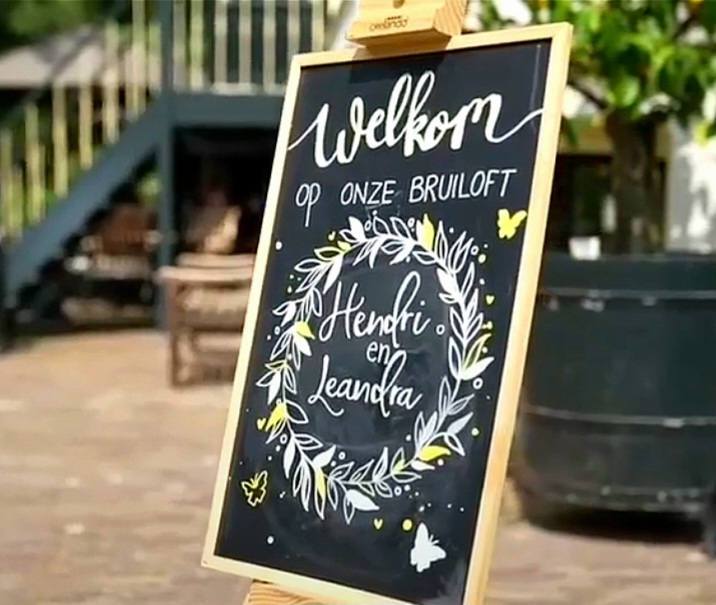 Welkom
op ONZE BRUILOFT
Hendri
en
Leandra